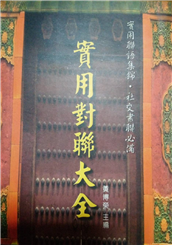 實用聯語集錦·社交書聯必備
實用對聯大全
主編